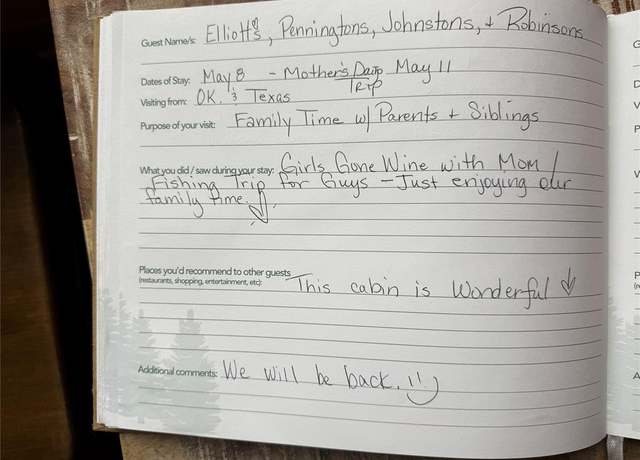 Guest Name/s: Elliott's, Penningtons, Johnstons, + Robinsons
Dates of Stay: May 8 - Mother's Day May 11
Trip
Visiting from: OK. & Texas
Purpose of your visit: Family Time w/ Parents + Siblings
What you did / saw during your stay: Girls Gone Wine with Mom /
Fishing Trip for Guys - Just enjoying our
family time.
Places you'd recommend to other guests
(restaurants, shopping, entertainment, etc): This cabin is Wonderful
Additional comments: We will be back.
G
D
V
P
W
P
(re
A